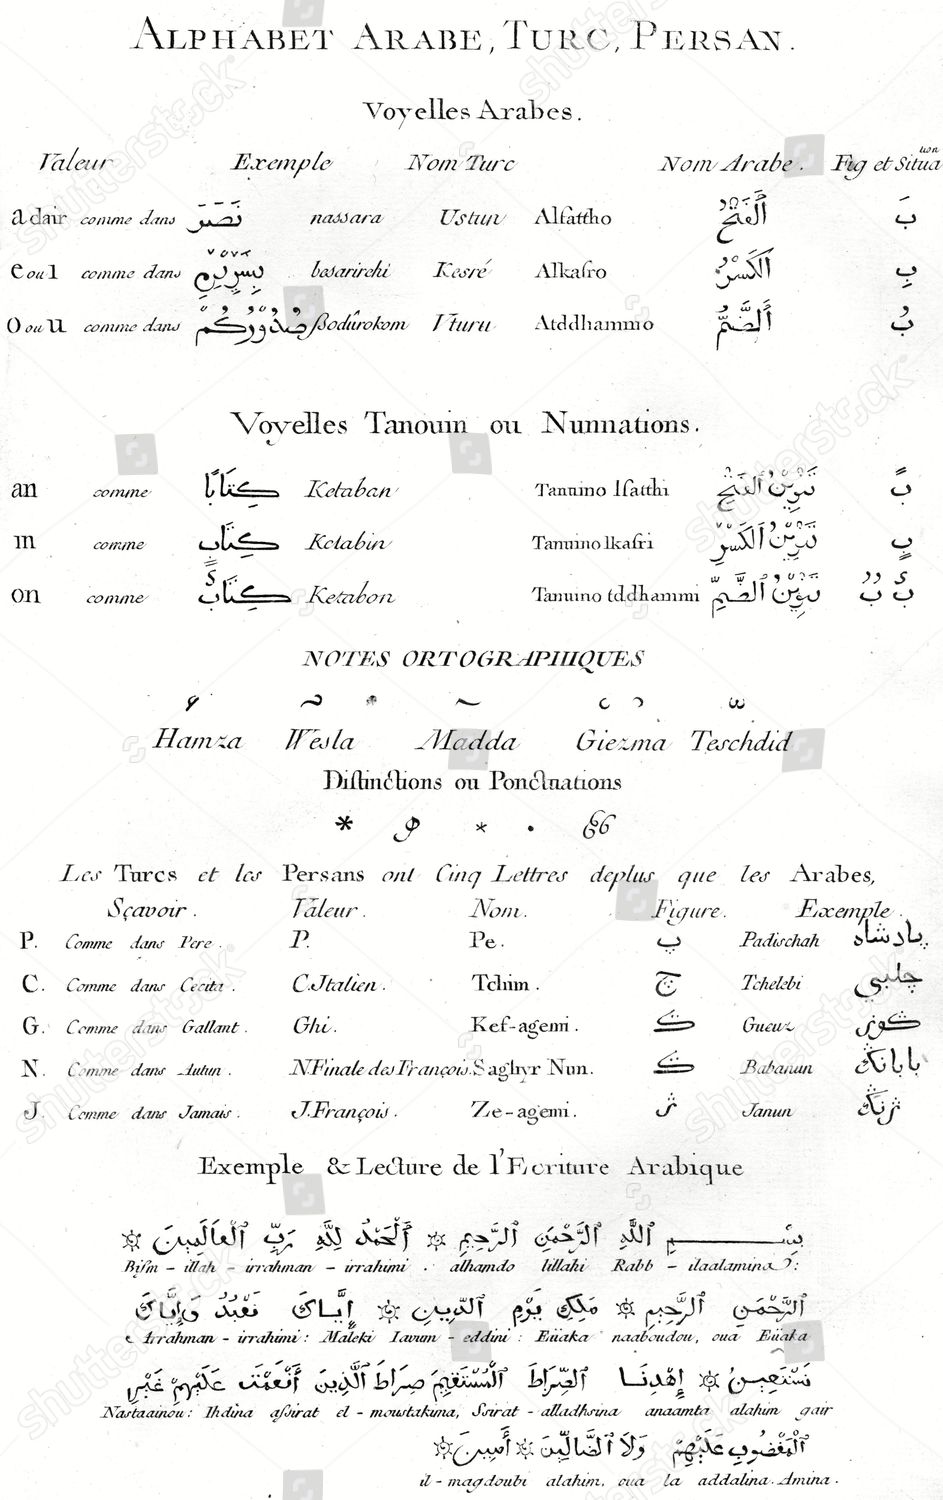 ALPHABET ARABE, TURC, PERSAN.
Voyelles Arabes.
Valeur Exemple Nom Turc Nom Arabe. Fig et Situation
a dair comme dans نَصَرَ nassara Ustun Alfattho اَلْفَتْحُ بَ
e ou i comme dans بِسِرِرِمِ besarirehi Kesré Alkasro اَلْكَسْرُ بِ
o ou u comme dans صُدُورُكُمْ ßodûrokom Uturu Atddhammo اَلضَّمُّ بُ
Voyelles Tanouin ou Nunnations.
an comme كِتَابًا Ketaban Tanuino lfatthi تَنْوِيْنُ الْفَتْحِ بً
in comme كِتَابٍ Ketabin Tanuino lkasri تَنْوِيْنُ الْكَسْرِ بٍ
on comme كِتَابٌ Ketabon Tanuino tddhammi تَنْوِيْنُ الضَّمِّ بٌ بٌ
NOTES ORTOGRAPHIQUES
Hamza Wesla Madda Giezma Teschdid
Distinctions ou Ponctuations
Les Turcs et les Persans ont Cinq Lettres deplus que les Arabes,
Sçavoir. Valeur. Nom. Figure. Exemple.
P. Comme dans Pere. P. Pe. پ Padischah پادشاه
C. Comme dans Cecita. C.Italien. Tchim. چ Tchelebi چلبي
G. Comme dans Gallant. Ghi. Kef-agemi. ڪ Gueuz ڪوز
N. Comme dans Autun. N.Finale des François. Saghyr Nun. ڭ Babanun باباڭ
J. Comme dans Jamais. J.François. Ze-agemi. ژ Janun ژنڭ
Exemple & Lecture de l'Ecriture Arabique
بِسْــــمِ اللّٰهِ الرَّحْمٰنِ الرَّحِيْمِ ۞ اَلْحَمْدُ لِلّٰهِ رَبِّ الْعَالَمِينَ ۞
Bism-illah-irrahman-irrahimi. alhamdo lillahi Rabb-ilaalamina:
الرَّحْمٰنِ الرَّحِيْمِ ۞ مَلِكِ يَوْمِ الدِّينِ ۞ إِيَّاكَ نَعْبُدُ وَإِيَّاكَ
Arrahman-irrahimi: Maleki Iavum-eddini: Eüaka naaboudou, oua Eüaka
نَسْتَعِينُ ۞ إِهْدِنَا الصِّرَاطَ الْمُسْتَقِيمَ صِرَاطَ الَّذِينَ أَنْعَمْتَ عَلَيْهِمْ غَيْرِ
Nastaainou: Ihdina assirat el-moustakima, Ssirat-alladhsina anaamta alahim gair
الْمَغْضُوبِ عَلَيْهِمْ وَلَا الضَّالِّينَ ۞ أَمِينَ ۞
il-magdoubi alahim, oua la addalina. Amina.